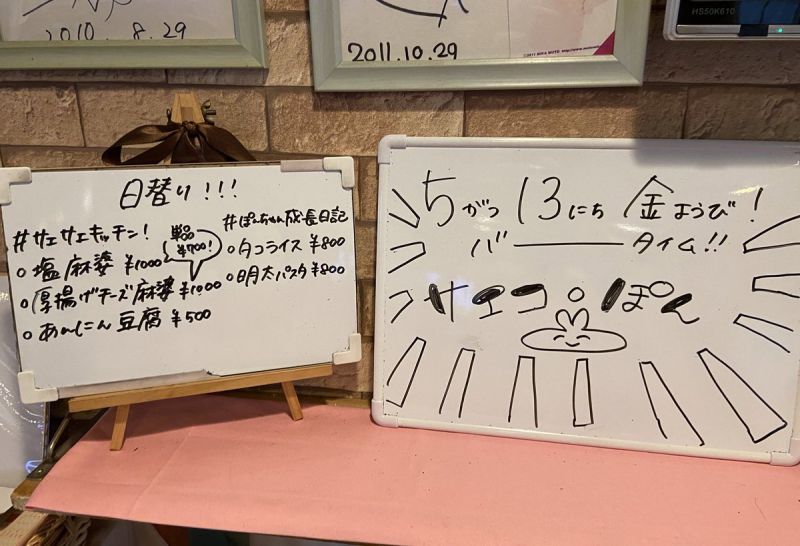 2010.8.29
2011.10.29
HS50K610
日替り!!!
#サエサエキッチン!
単品¥700!
○塩麻婆 ¥1000
○厚揚げチーズ麻婆 ¥1000
○あんにん豆腐 ¥500
#ぽんちゃん成長日記
○タコライス ¥800
○明太パスタ ¥800
5がつ13にち金ようび!
バータイム!!
サエコ・ぽん